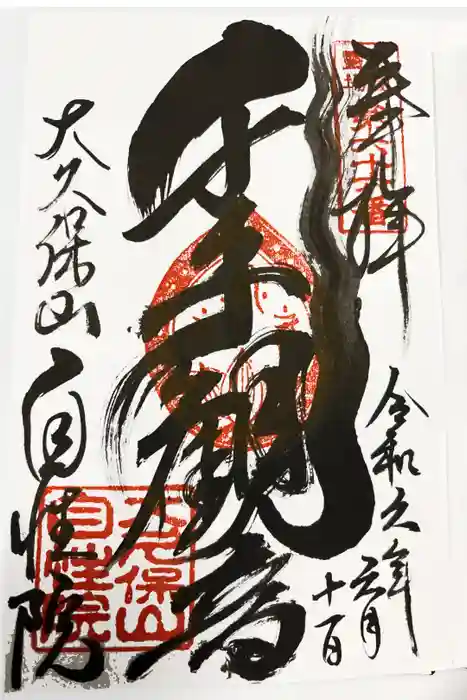 奉拝
令和六年
六月
十一日
千手観音
大久保山
自性院
大久保山
自性院